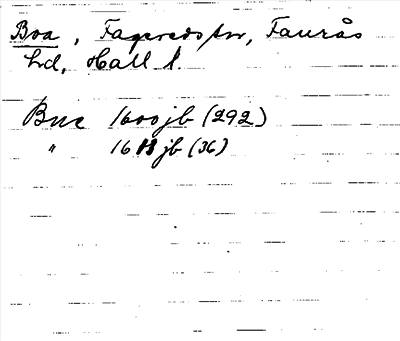 Boa, Fagereds sn, Faurås
hd, Hall l.
Bua 1600 jb (292)
" 16 jb (36)